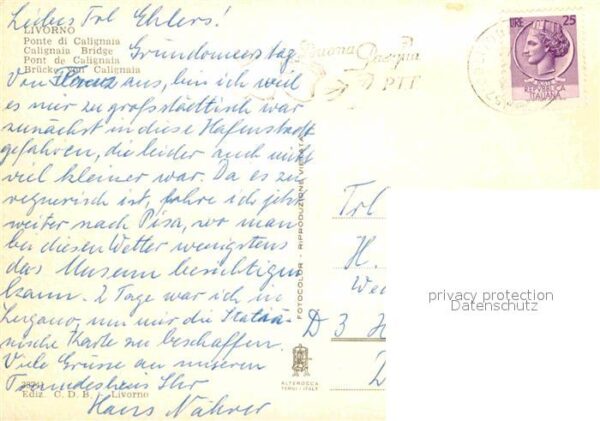 Liebes Frl Ehlers!
LIVORNO
Ponte di Calignaia
Calignaia Bridge
Pont de Calignaia
Brücke von Calignaia
Gründonnerstag
Von Florenz aus, bin ich weil
es mir zu großstädtisch war
zunächst in diese Hafenstadt
gefahren, die leider auch nicht
viel kleiner war. Da es zu
regnerisch ist, fahre ich jetzt
weiter nach Pisa, wo man
bei diesen Wetter wenigstens
das Museum besichtigen
kann. 2 Tage war ich in
Lugano, um mir die Italiä-
nische Karte zu beschaffen.
Viele Grüsse an unseren
Freundeskreis Ihr
Hans Nährer
Ediz. C. D. B. - Livorno
Buona Pasqua
PTT
LIRE 25
REPUBBLICA
ITALIANA
FOTOCOLOR - RIPRODUZIONE VIETATA
ALTEROCCA
TERNI - ITALY
Frl
H.
We
D 3 H
privacy protection
Datenschutz